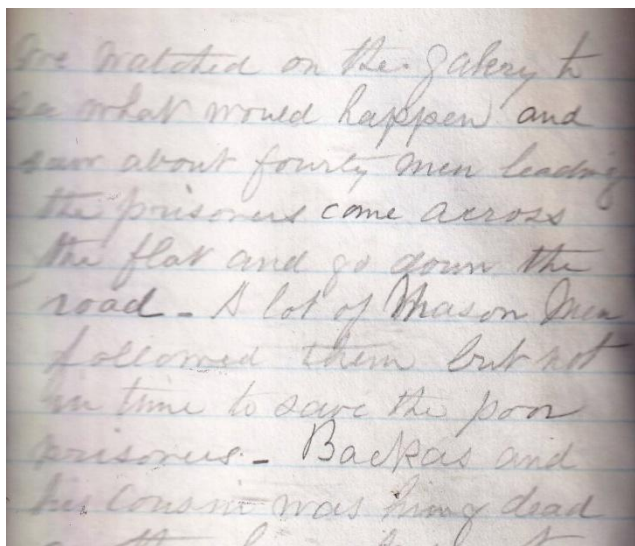 We watched on the galery to
see what would happen and
saw about fourty men leading
the prisoners come across
the flat and go down the
road - A lot of Mason Men
followed them but not
in time to save the poor
prisoners - Backas and
his Cousin was hung dead